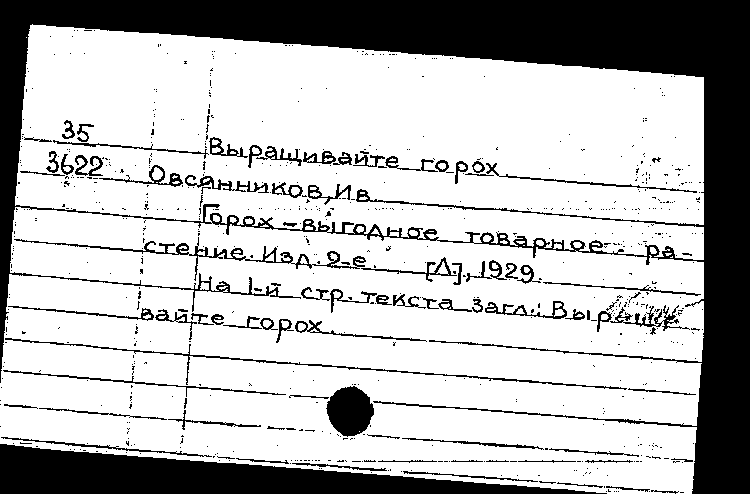 35
3622
Выращивайте горох
Овсянников, Ив.
Горох – выгодное товарное ра-
стение. Изд. 2-е. [Л.], 1929.
На 1-й стр. текста загл.: Выращи-
вайте горох.